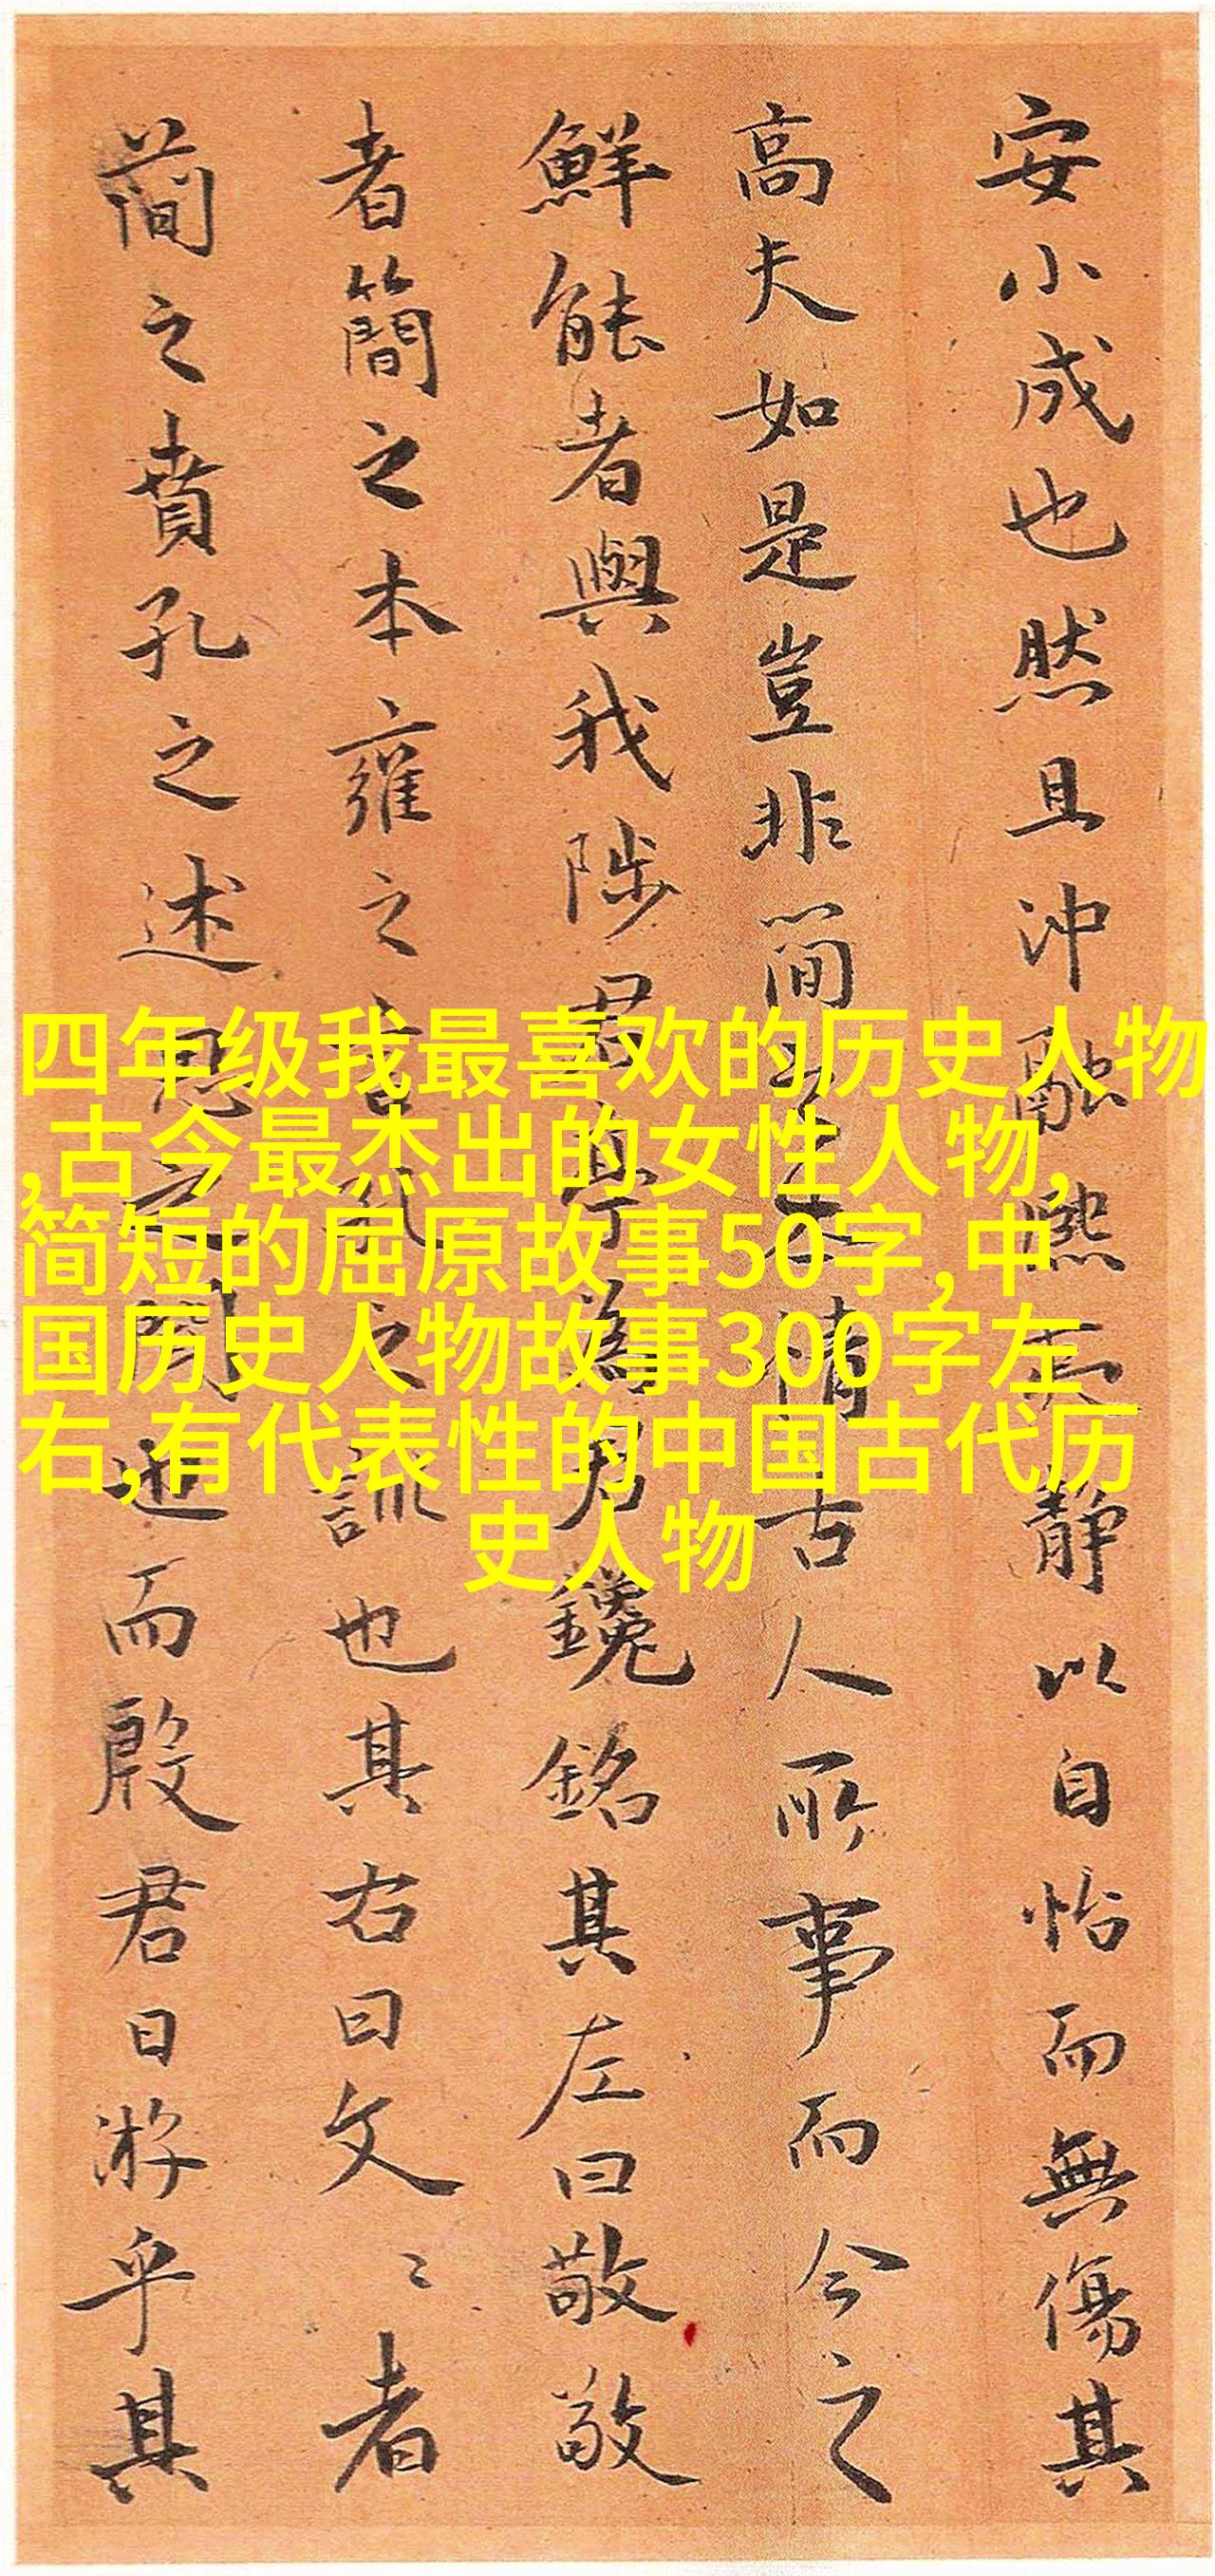 安小成也然且沖融熙夷靜以自怡而無傷其
高夫如是豈非簡之本情古人所事而今之
鮮能者與我陟君早為君鑱銘其左曰敬敬
者簡之本雍之言夙之訛也其右曰文〻者
簡之賁孔之述思之閑迆而殿君日游乎其
四年级我最喜欢的历史人物
,古今最杰出的女性人物,
简短的屈原故事50字,中
国历史人物故事300字左
右,有代表性的中国古代历
史人物